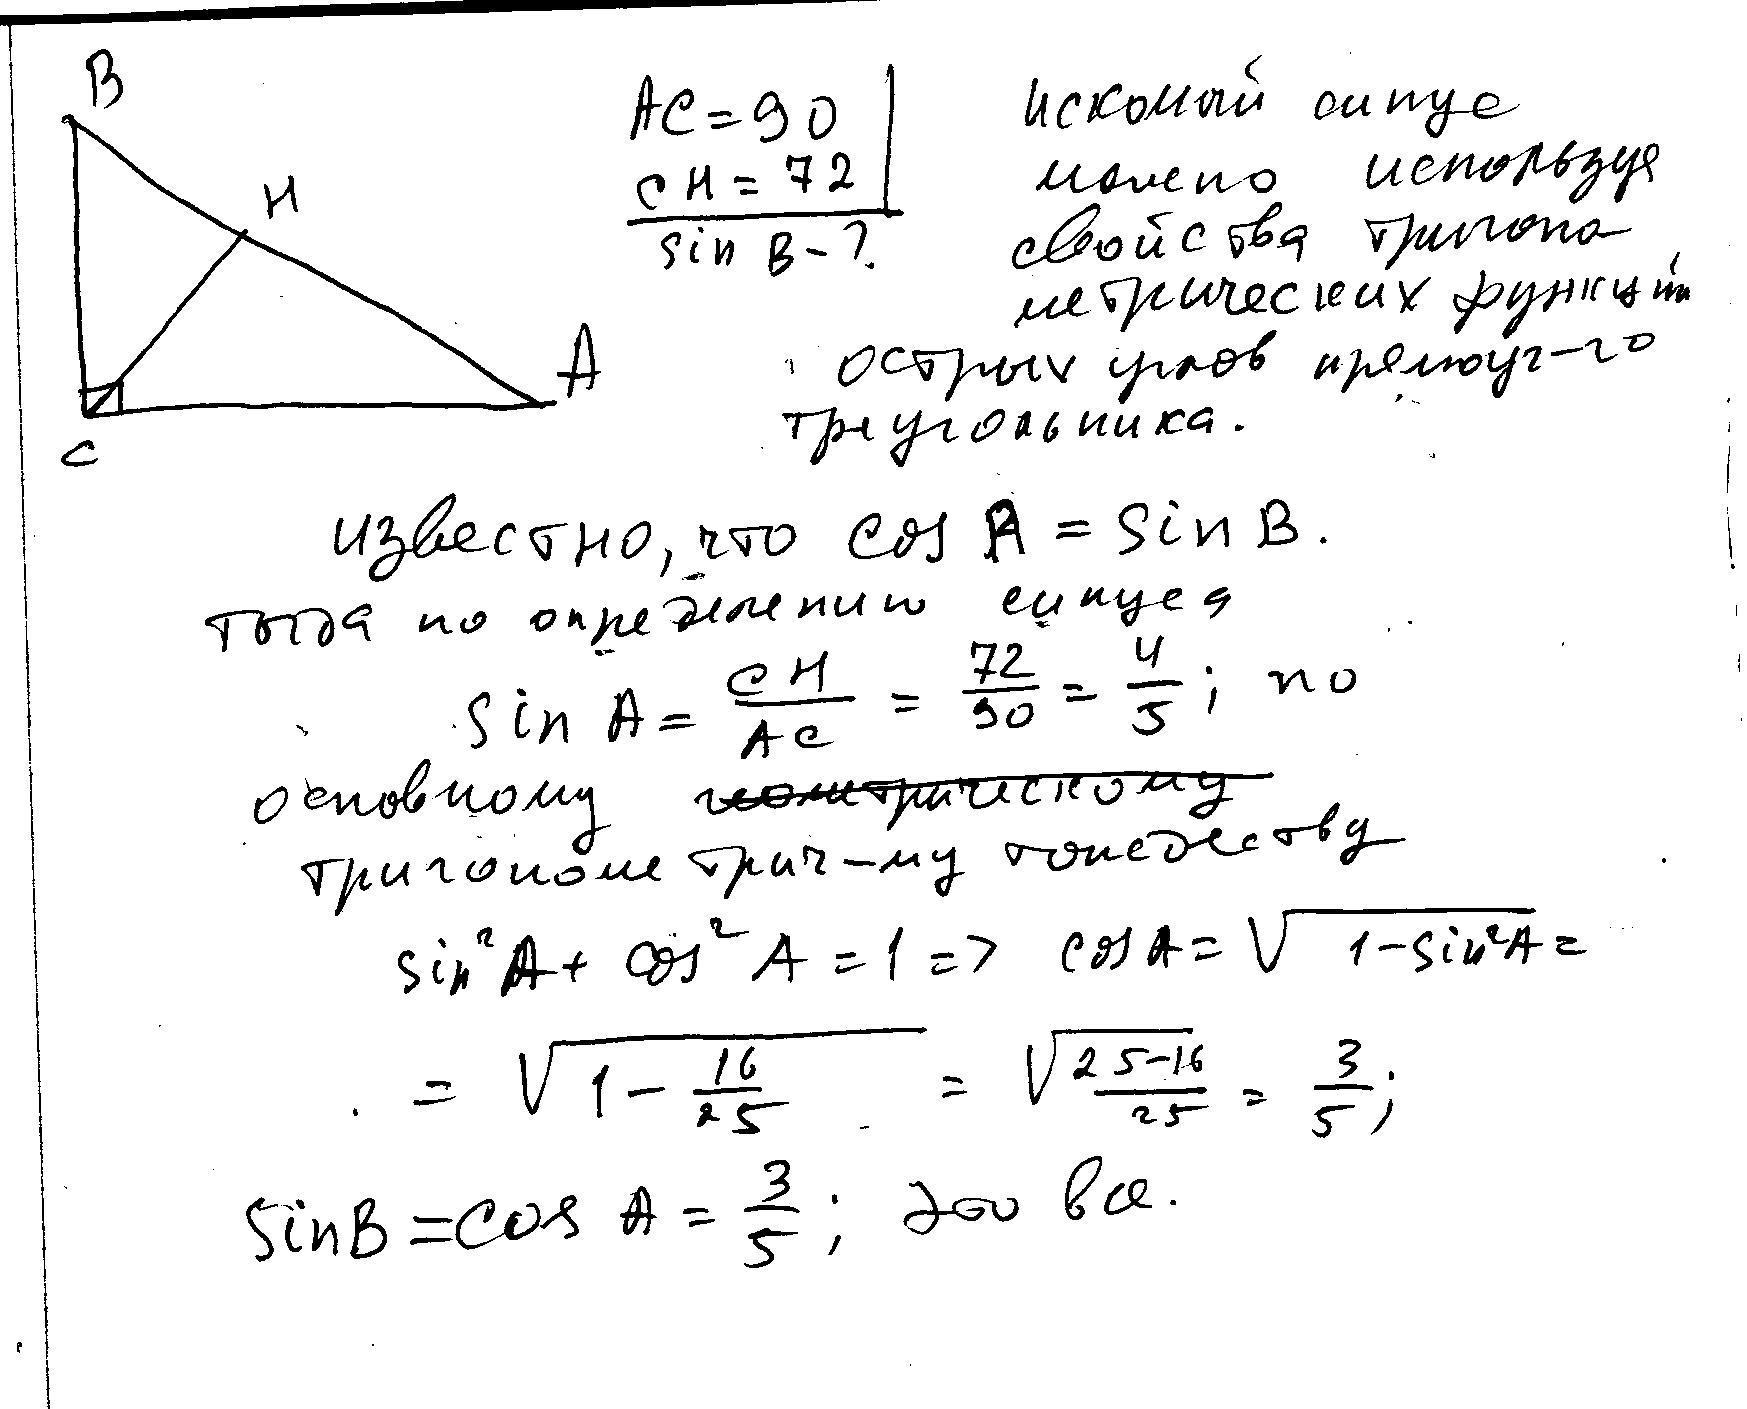 B
H
A
C
AC = 90
CH = 72
sin B - ?
искомый синус
можно используя
свойства тригоно
метрических функций
острых углов прямоуг-го
треугольника.
известно, что cos A = sin B.
тогда по определению синуса
sin A = CH/AC = 72/90 = 4/5; по
основному геометрическому
тригонометрич-му тождеству
sin²A + cos²A = 1 => cos A = √1 - sin²A =
= √1 - 16/25 = √25-16/25 = 3/5;
sin B = cos A = 3/5; это все.